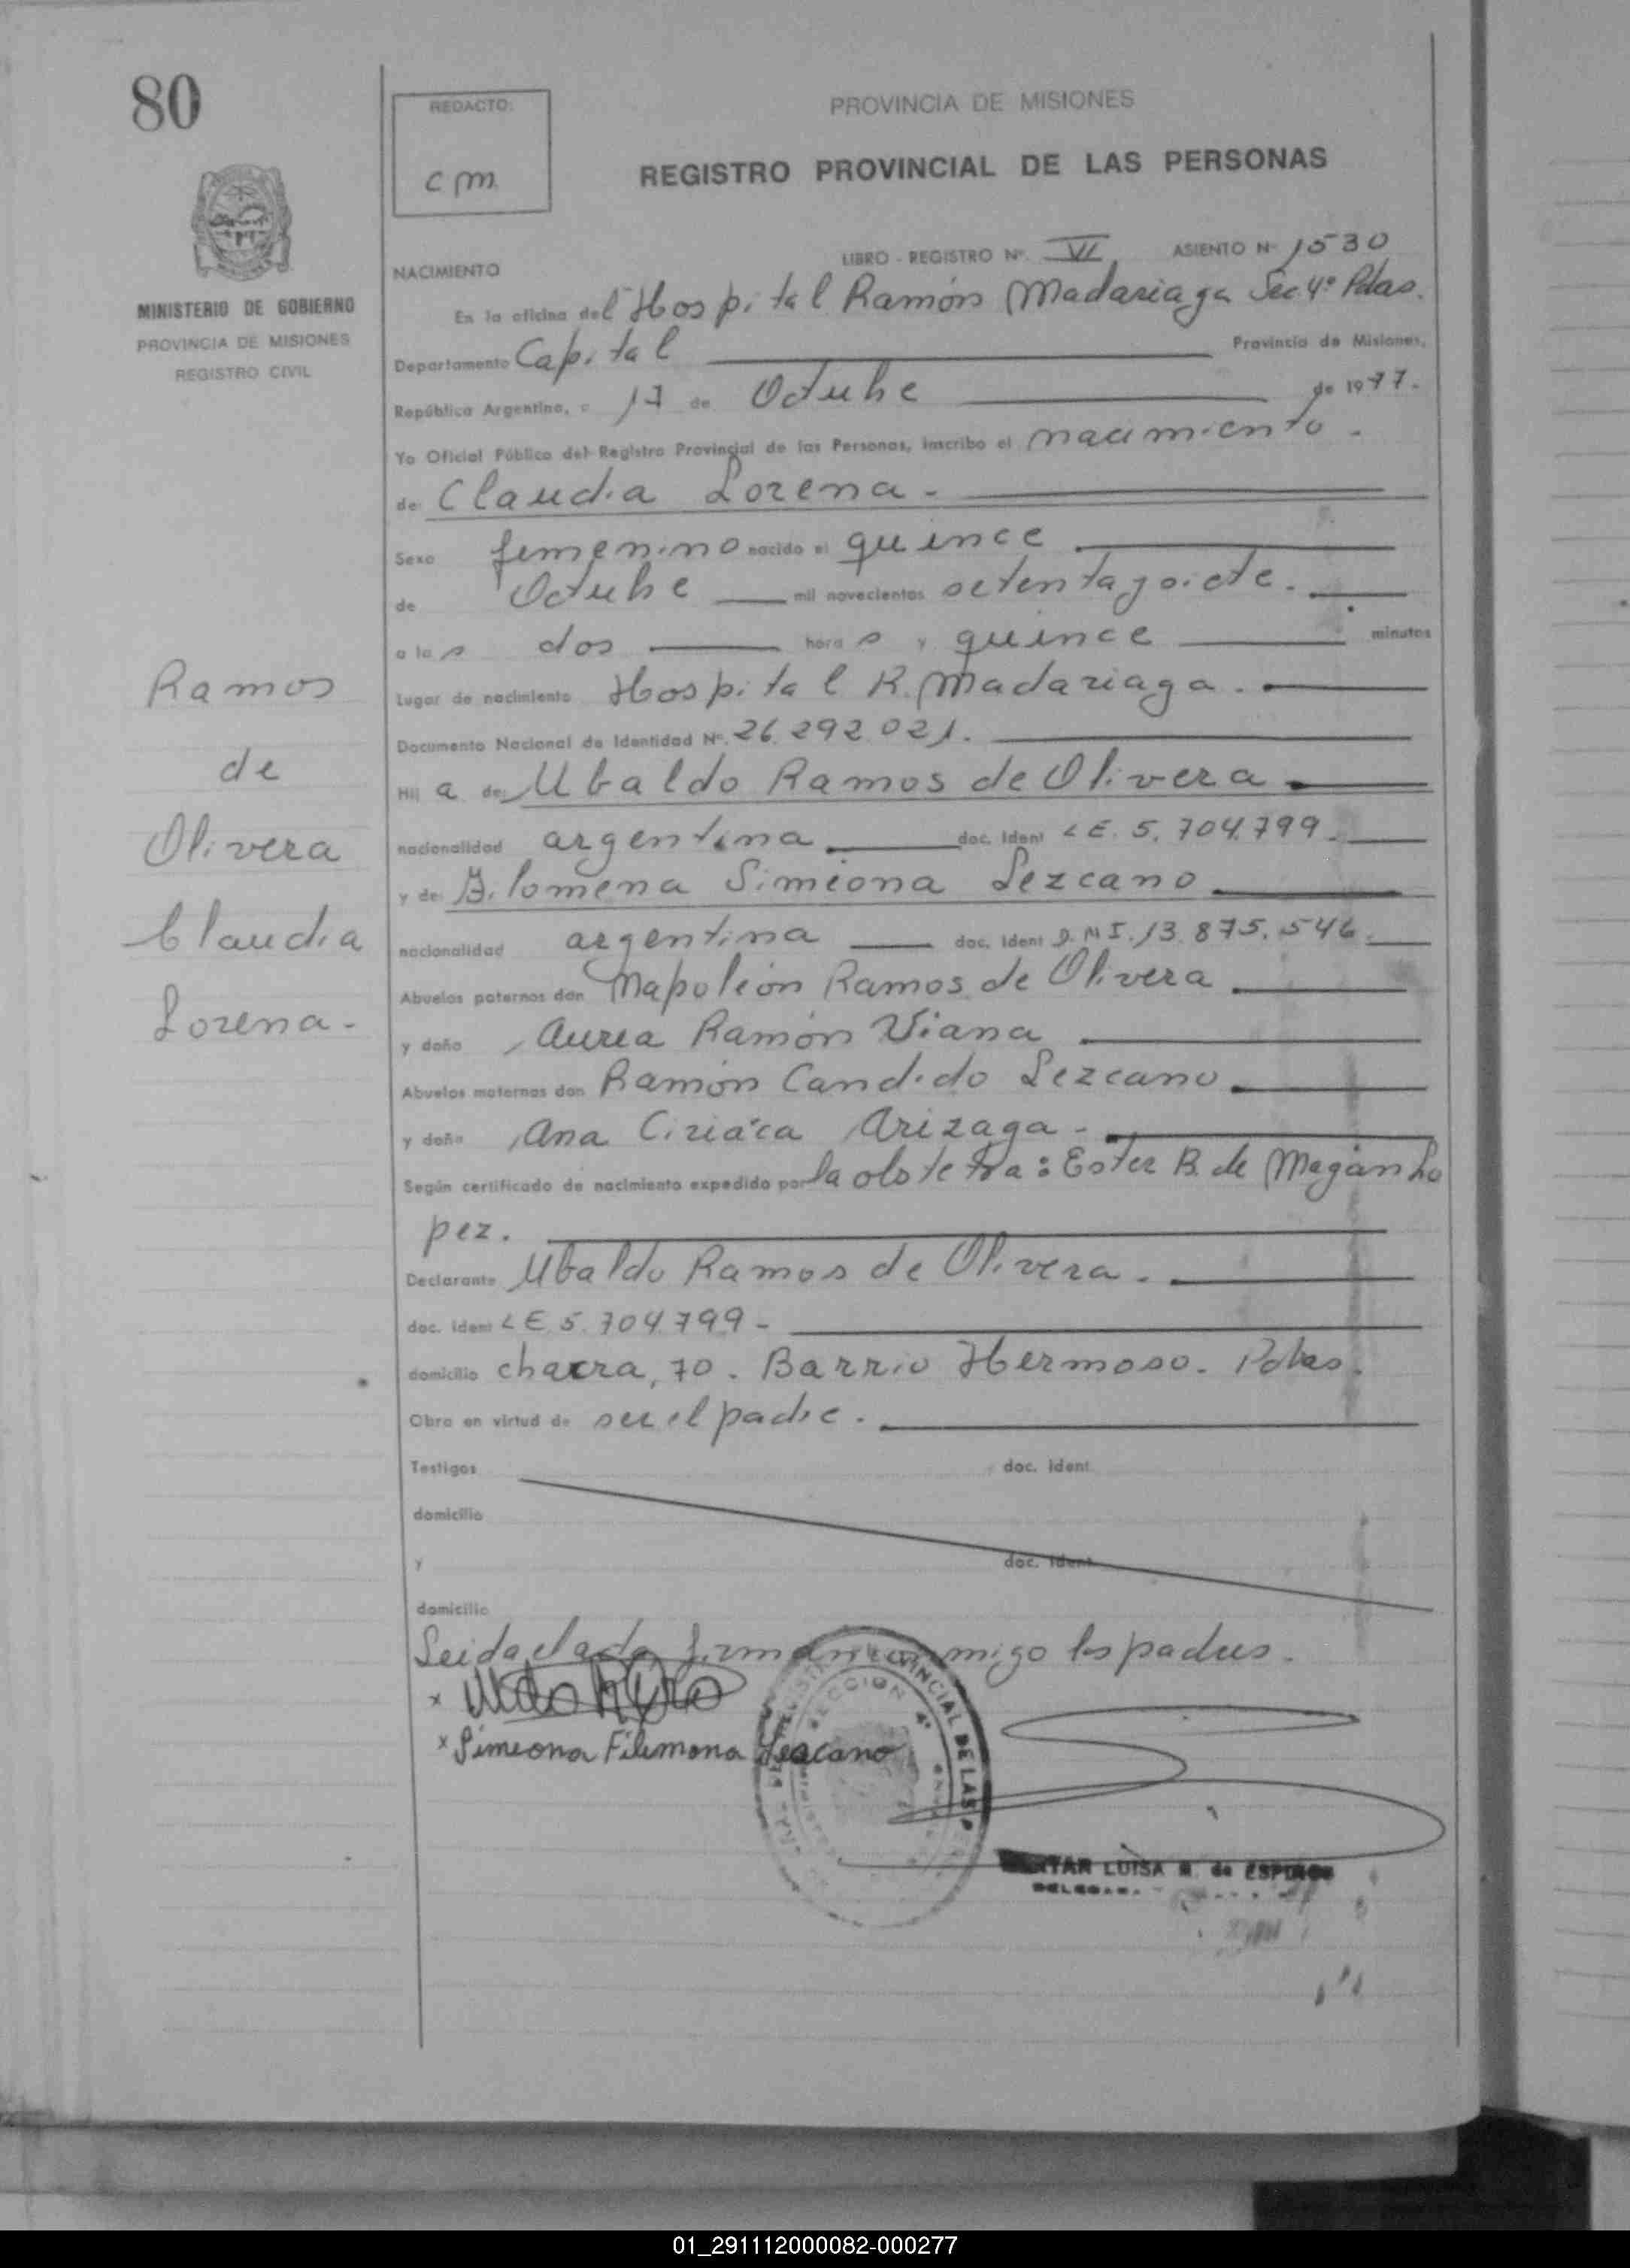 80
REDACTO:
cm
PROVINCIA DE MISIONES
REGISTRO PROVINCIAL DE LAS PERSONAS
MINISTERIO DE GOBIERNO
PROVINCIA DE MISIONES
REGISTRO CIVIL
LIBRO - REGISTRO Nº. VI ASIENTO Nº 1530
NACIMIENTO
En la oficina del Hospital Ramón Madariaga Sec 4º Pdas.
Departamento Capital Provincia de Misiones,
República Argentina, a 17 de Octubre de 1977.
Yo Oficial Público del Registro Provincial de las Personas, inscribo el nacimiento.
de Claudia Lorena.
Sexo femenino nacido el quince
de Octubre mil novecientos setenta y siete.
a las dos horas y quince minutos
Lugar de nacimiento Hospital R. Madariaga.
Documento Nacional de Identidad Nº. 26.292.021.
Hij a de: Ubaldo Ramos de Olivera
nacionalidad argentina doc. Ident LE. 5.704.799.
y de: Filomena Simeona Lezcano
nacionalidad argentina doc. Ident D.N.I. 13.875.546.
Abuelos paternos don Napoleón Ramos de Olivera
y doña Aurea Ramón Viana
Abuelos maternos don Ramón Candido Lezcano
y doña Ana Ciriáca Arizaga.
Según certificado de nacimiento expedido por la obstetra: Ester B. de Megán Lo
pez.
Declarante Ubaldo Ramos de Olivera.
doc. Ident LE. 5.704.799-
domicilio chacra, 70. Barrio Hermoso. Pdas.
Obra en virtud de ser el padre.
Testigos doc. Ident.
domicilio
y doc. Ident.
domicilio
Leida el acta, firman conmigo los padres.
x
x Simeona Filomena Lezcano
SECCION 4ª
PROVINCIAL DE LAS
LUISA de ESPINOSA
Ramos
de
Olivera
Claudia
Lorena-
01_291112000082-000277